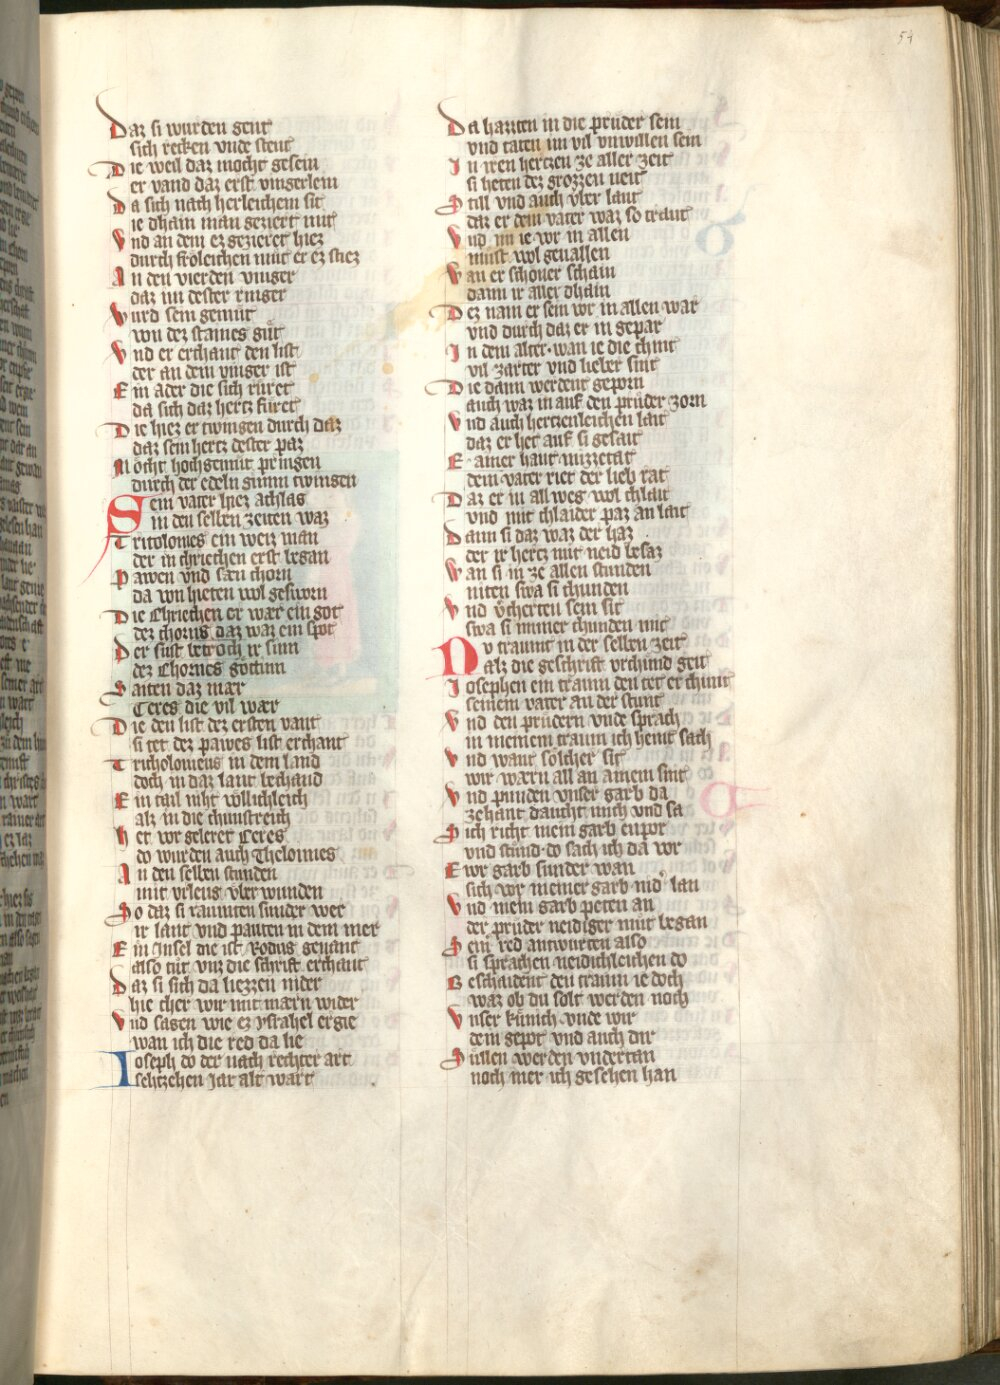 54
Daz si wurden gent
sich recken vnde stent
Die weil daz mocht gesein
er vand daz erst vingerlein
Da sich nach herleichem sit
ie dhain man geziert mit
Vnd an dem ez gezieret hiez
durch frόleichen mut er ez stiez
An den vierden vinger
daz im dester ringer
Wurd sein gemǔt
von dez staines gǔt
Vnd er erchant den list
der an dem vinger ist
Ein ader die sich rǔret
da sich daz hertz fǔret
Die hiez er twingen durch daz
daz sein hertz dester paz
Mocht hochgemǔt pringen
durch der edeln stimm twingen
Sein vater hiez achlas
in den selben zeiten waz
Tritolomes ein weiz man
der in chriechen erst began
Pawen vnd sæn chorn
da von hieten wol gesworn
Die Chriechen er wær ein got
dez chorns daz waz ein spot
Der sust betroch ir sinn
dez Chornes gottinn
Saiten daz mær
Ceres die vil wær
Die den list dez ersten vant
si tet dez pawes list erchant
Tricholomeus in dem land
doch in daz lant bechand
Ein tail niht vollichleich
alz in die chunstreich
Het vor geleret Ceres
do wurden auch Thelomes
An den selben stunden
mit vrleus vber wunden
So daz si raumten sunder wer
ir lant vnd pauten in dem mer
Ein Insel die ist Rodus genant
also tǔt vnz die schrift erchant
Daz si sich da liezzen nider
hie cher wir mit mærn wider
Vnd sagen wie ez ysrahel ergie
wan ich die red da lie
Ioseph do der nach rechter art
sehtzehen Jar alt wart
Da hazten in die prǔder sein
vnd taten im vil vnwillen sein
In iren hertzen ze aller zeit
si heten dez grozzen neit
Still vnd auch vber laut
daz er dem vater waz so traut
Vnd im ie vor in allen
must wol geuallen
Wan er schoner schain
dann ir aller dhain
Dez nam er sein vor in allen war
vnd durch daz er in gepar
In dem alter wan ie die chint
vil zarter vnd lieber sint
Die dann werdent geporn
auch waz in auf den prǔder zorn
Vnd auch hertzenleichen lait
daz er het auf si gesait
E ainer haut missetat
dem vater riet der lieb rat
Daz er in all weg wol chlait
vnd mit chlaider paz an lait
Dann si daz waz der haz
der ir hertz mit neid besaz
Wan si in ze allen stunden
niten swa si chunden
Vnd vͦcherten sein sit
swa si immer chunden mit
Nv traumt in der selben zeit
alz die geschrift vrchund geit
Iosephen ein traum den tet er chunt
seinem vater an der stunt
Vnd den prǔdern vnde sprach
in meinem traum ich heint sach
Vnd want solcher sit
wir wærn all an ainem snit
Vnd punden vnser garb da
zehant daucht mich vnd sa
Sich richt mein garb enpor
vnd stǔnd do sach ich da vor
Ewr garb sunder wan
sich vor meiner garb nid lan
Vnd mein garb peten an
der prǔder neidiger mǔt began
Sein red antwurten also
si sprachen neidichleichen do
Beschaident den traum ie doch
waz ob du solt werden noch
Vnser kǔnich vnde wir
dem gepot vnd auch dir
Sǔllen werden vndertan
noch mer ich gesehen han